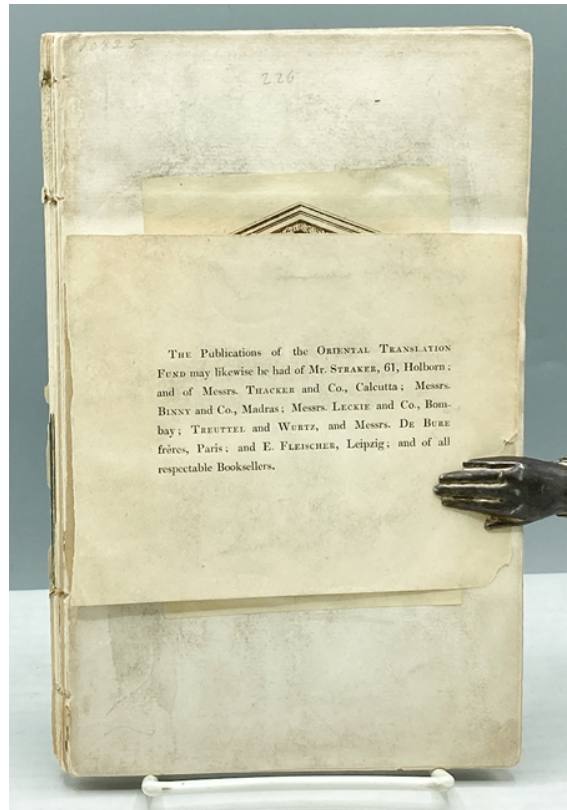 10825
226
THE Publications of the ORIENTAL TRANSLATION
FUND may likewise be had of Mr. STRAKER, 61, Holborn;
and of Messrs. THACKER and Co., Calcutta; Messrs.
BINNY and Co., Madras; Messrs. LECKIE and Co., Bom-
bay; TREUTTEL and WURTZ, and Messrs. DE BURE
frères, Paris; and E. FLEISCHER, Leipzig; and of all
respectable Booksellers.